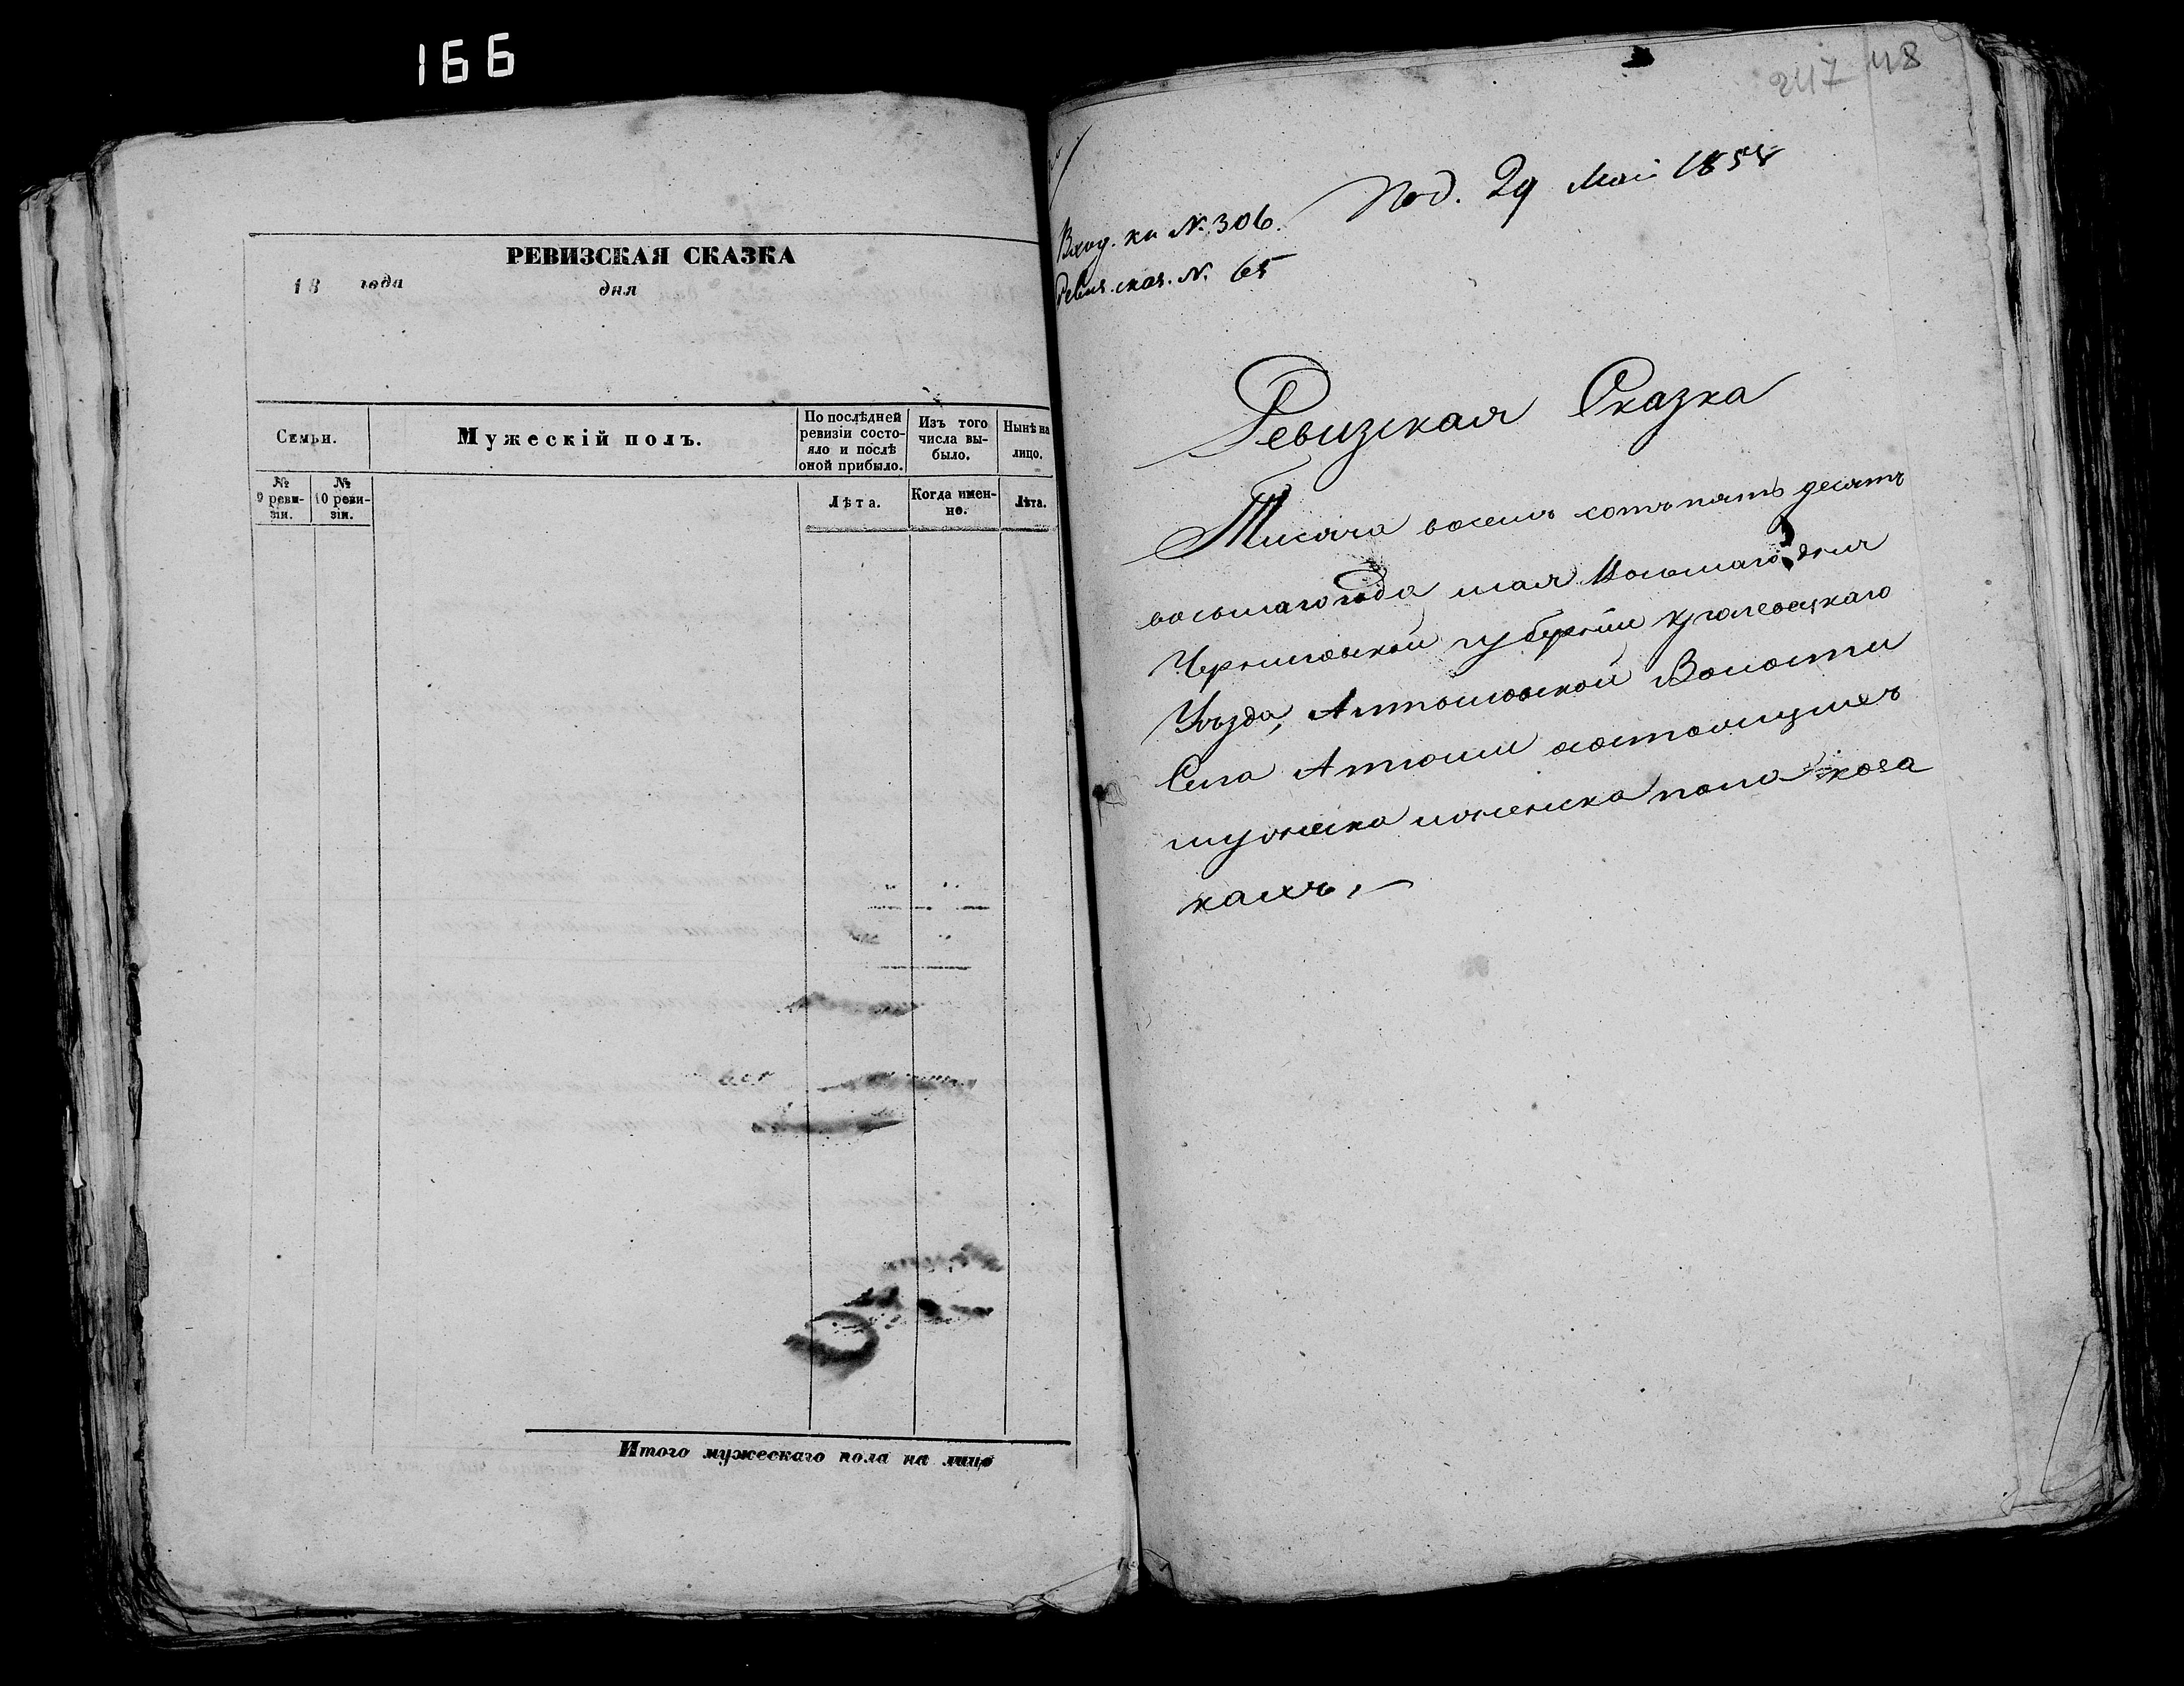 166
РЕВИЗСКАЯ СКАЗКА
18 года дня
Семьи.
Мужескій полъ.
По послѣдней ревизіи состо-
яло и послѣ
оной прибыло.
Изъ того
числа вы-
было.
Нынѣ на
лицо.
№
9 реви-
зіи.
№
10 реви-
зіи.
Лѣта.
Когда имен-
но.
Лѣта.
Итого мужескаго пола на лицо
247 48
Под. 29 Маі 1858
Вход. кн №. 306.
Ревиз. сказ. №. 65
Ревизская Сказка
Тисяча восемъ сотъ пять десятъ
восьмаго года мая Восьмаго дня
Черниговской губерніи Кролевецкаго
Уѣзда, Алтыновской Волости
Села Алтыновки состоящихъ
мужеска и женска пола коза
кахъ,